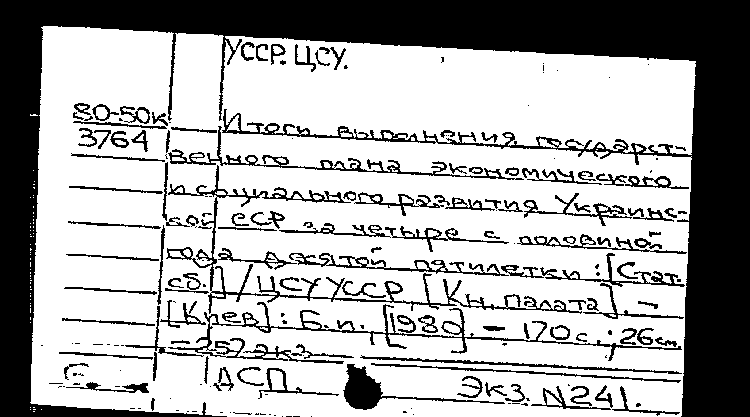 УССР. ЦСУ.
80-50к
3764
Итоги выполнения государст-
венного плана экономического
и социального развития Украинс-
кой ССР за четыре с половиной
года десятой пятилетки : [Стат.
сб.] / ЦСУ УССР, [Кн. палата]. —
[Киев] : Б.и., [1980]. — 170 с. ; 26 см.
— 257 экз.
ДСП. Экз. N 241.